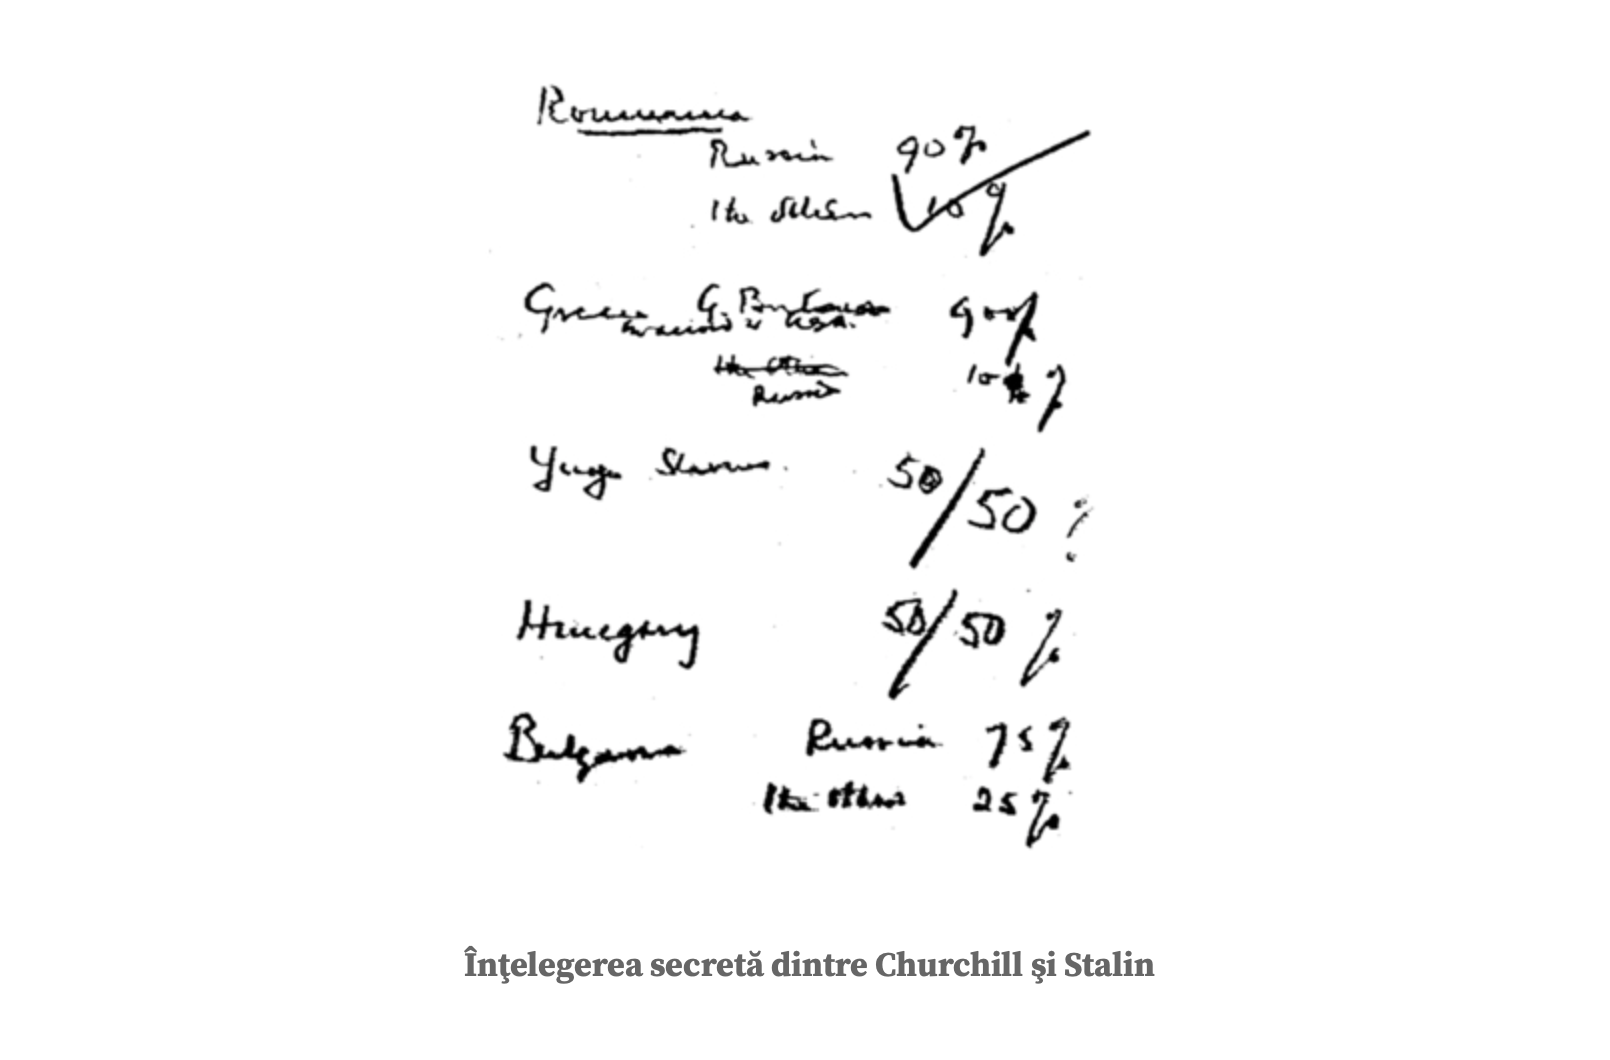 Roumania
Russia 90%
The others 10%
Greece G. Britain 90%
in accord w USA.
The others 10%
Russia
Yugo Slavia. 50/50 %
Hungary 50/50 %
Bulgaria Russia 75%
The others 25%
Înţelegerea secretă dintre Churchill şi Stalin